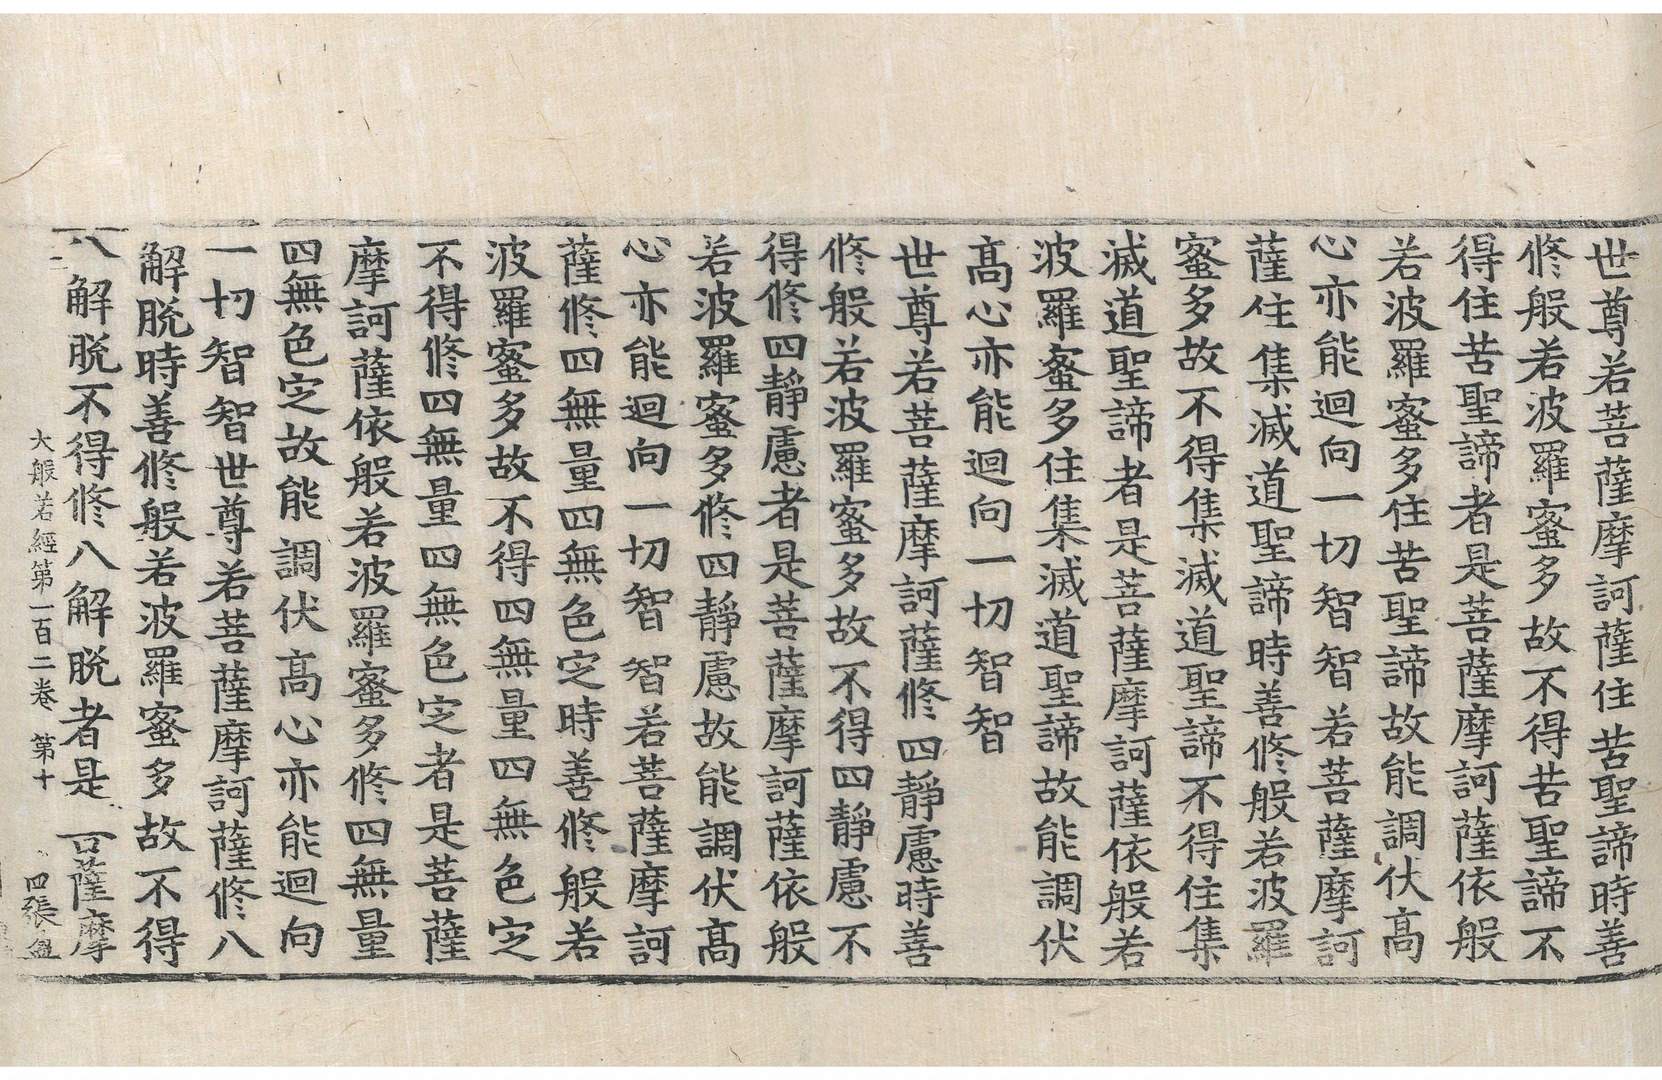 世尊若菩薩摩訶薩住苦聖諦時善
修般若波羅蜜多故不得苦聖諦不
得住苦聖諦者是菩薩摩訶薩依般
若波羅蜜多住苦聖諦故能調伏髙
心亦能迴向一切智智若菩薩摩訶
薩住集滅道聖諦時善修般若波羅
蜜多故不得集滅道聖諦不得住集
滅道聖諦者是菩薩摩訶薩依般若
波羅蜜多住集滅道聖諦故能調伏
髙心亦能迴向一切智智
世尊若菩薩摩訶薩修四靜慮時善
修般若波羅蜜多故不得四靜慮不
得修四靜慮者是菩薩摩訶薩依般
若波羅蜜多修四靜慮故能調伏髙
心亦能迴向一切智智若菩薩摩訶
薩修四無量四無色定時善修般若
波羅蜜多故不得四無量四無色定
不得修四無量四無色定者是菩薩
摩訶薩依般若波羅蜜多修四無量
四無色定故能調伏髙心亦能迴向
一切智智世尊若菩薩摩訶薩修八
解脱時善修般若波羅蜜多故不得
八解脱不得修八解脱者是薩摩
大般若經第一百二卷 第十四張 盈